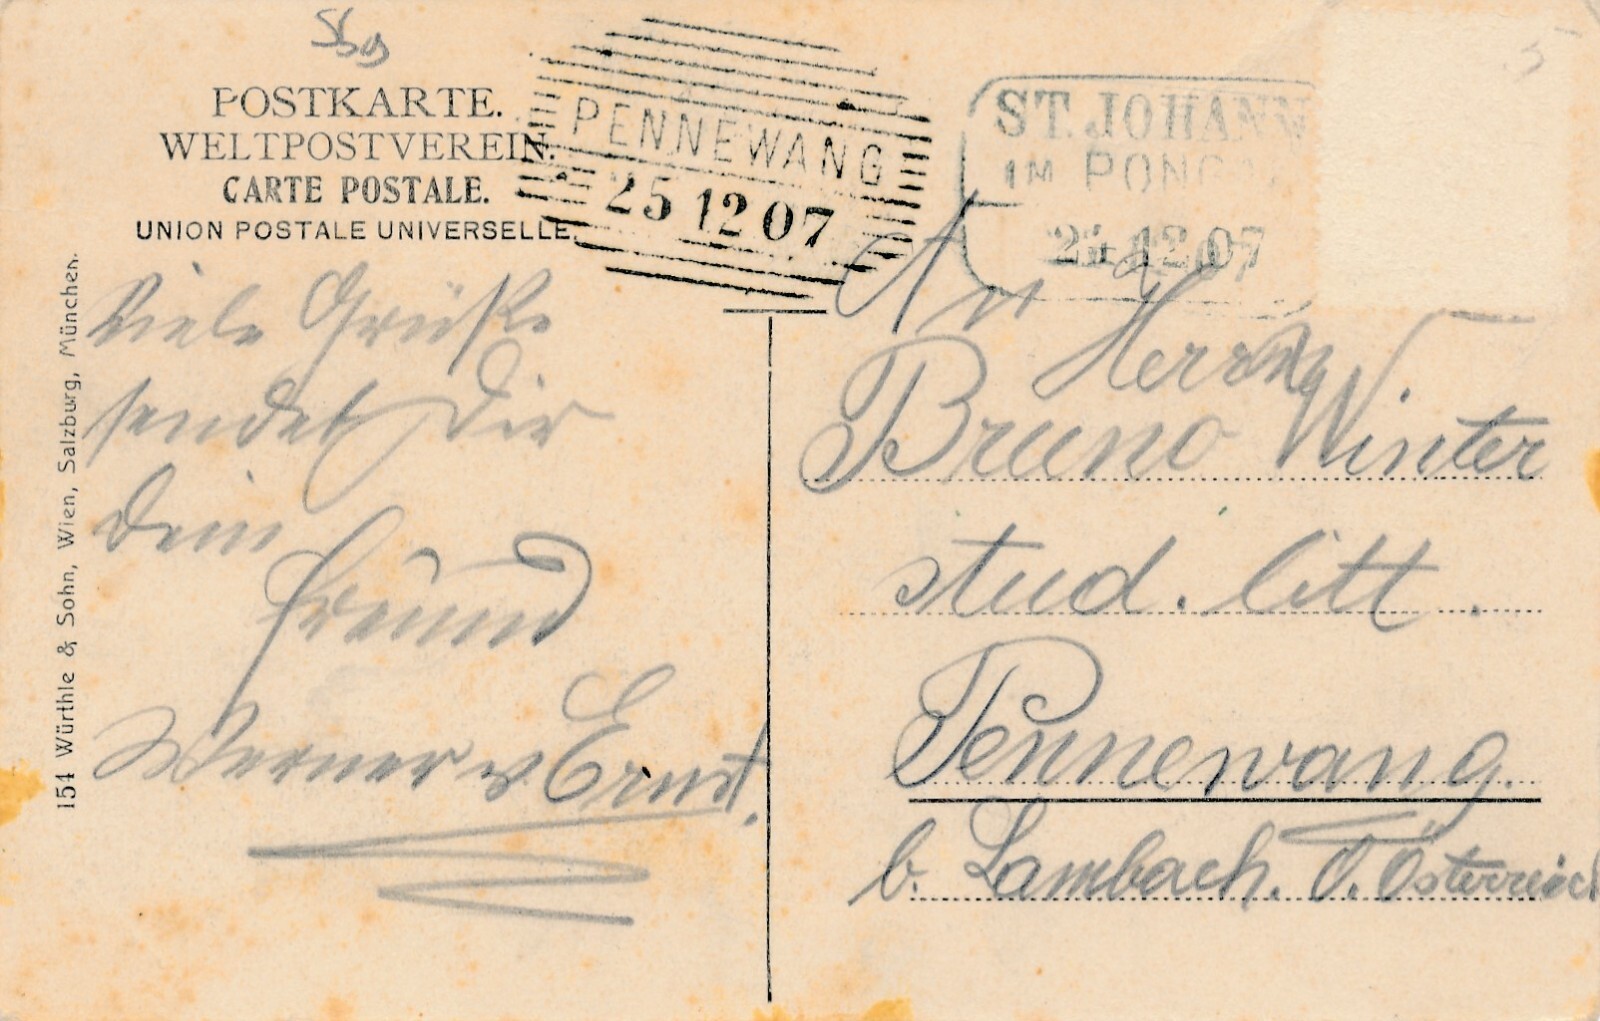 POSTKARTE.
WELTPOSTVEREIN.
CARTE POSTALE.
UNION POSTALE UNIVERSELLE.
PENNEWANG
25 12 07
ST. JOHANN
IM PONG
12 07
154 Würthle & Sohn, Wien, Salzburg, München.
Viele Grüße
sendet Dir
Dein
Freund
Werner v Ernst.
An
Herrn
Bruno Winter
stud. litt.
Pennewang.
b. Lambach. O. Österreich